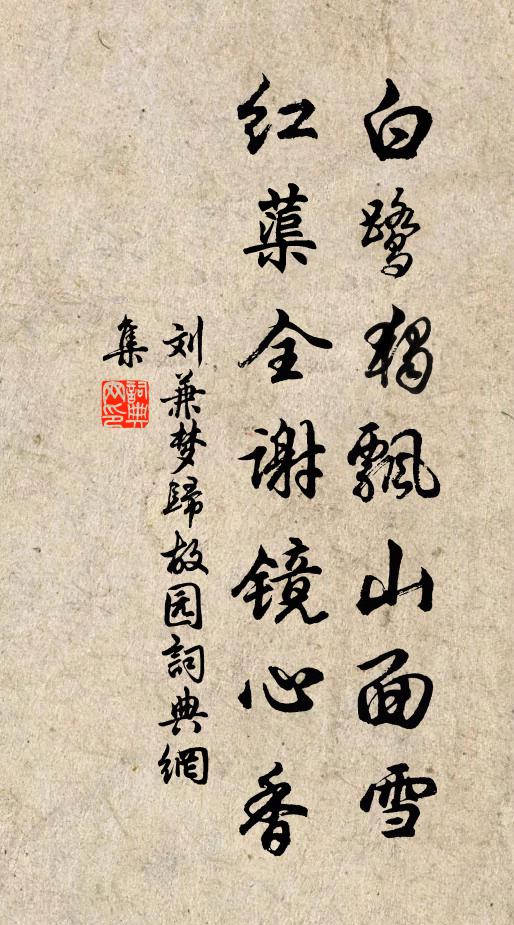 白鹭独飘山面雪
红蕖全谢镜心香
刘兼梦歸故园詞典網
集
詞典
网印